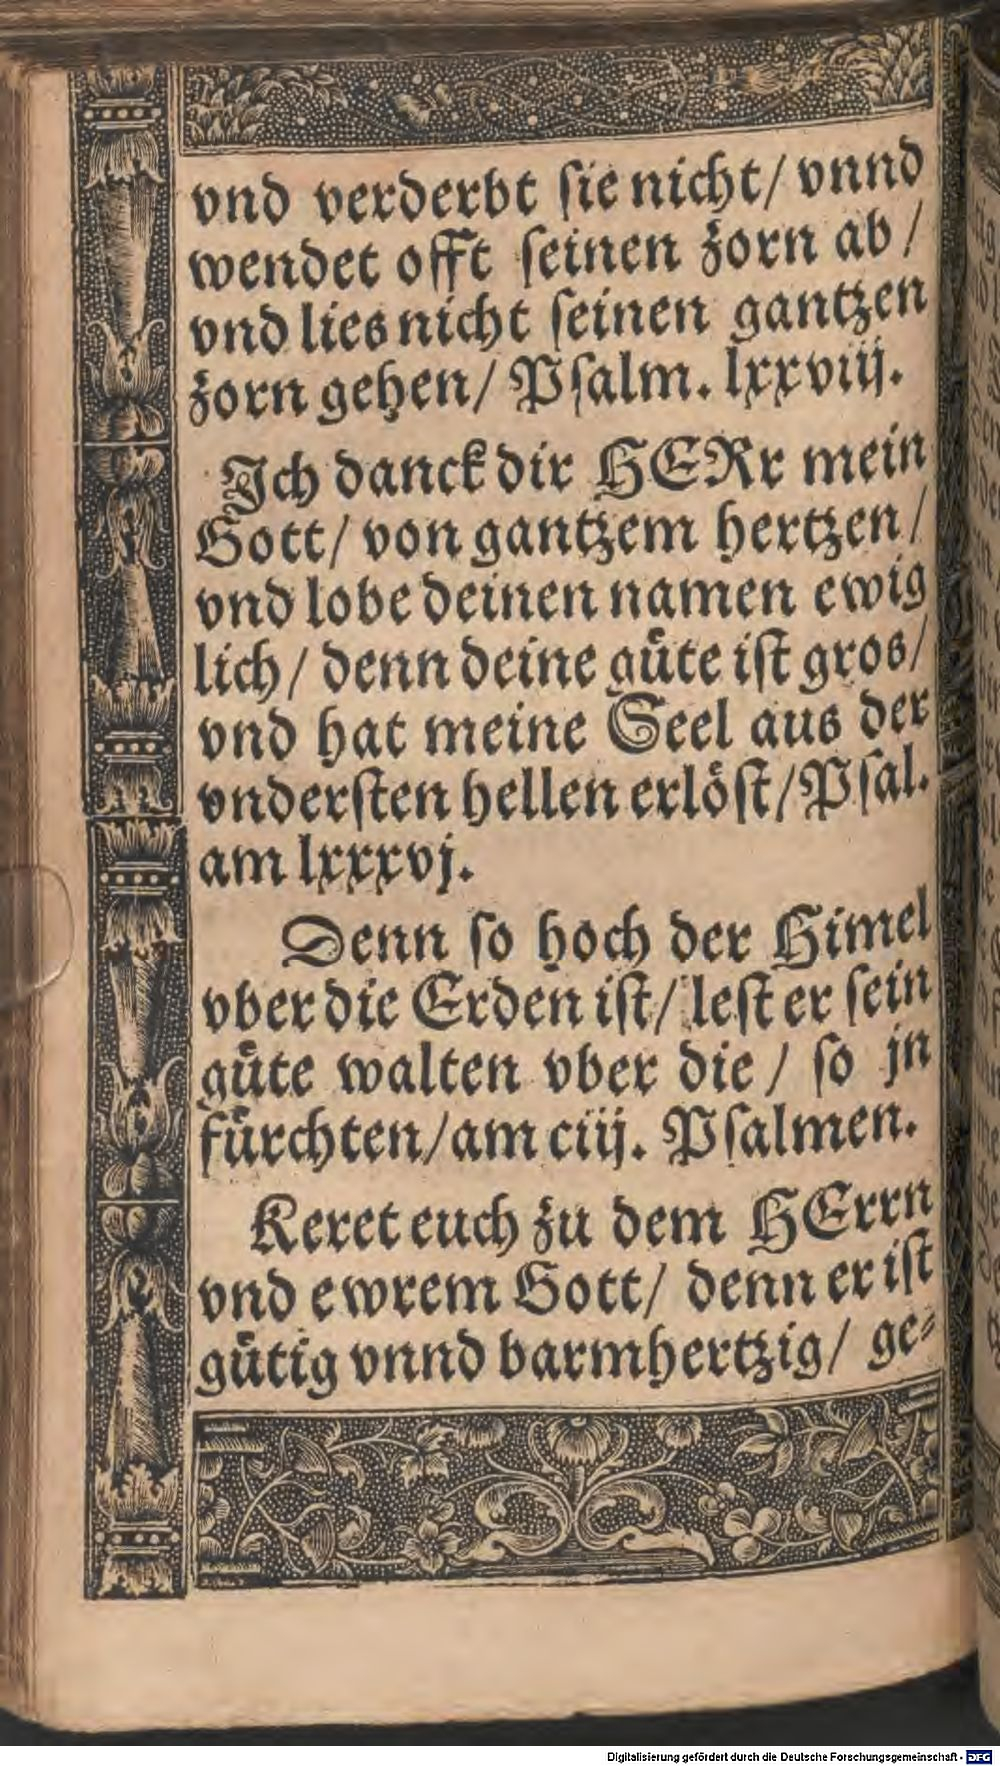 vnd verderbt sie nicht/ vnnd
wendet offt seinen zorn ab/
vnd lies nicht seinen gantzen
zorn gehen/ Psalm. lxxviij.
Ich danck dir HERr mein
Gott/ von gantzem hertzen/
vnd lobe deinen namen ewig
lich/ denn deine guͤte ist gros/
vnd hat meine Seel aus der
vndersten hellen erloͤst/ Psal.
am lxxxvj.
Denn so hoch der Himel
vber die Erden ist/ lest er sein
guͤte walten vber die/ so jn
fuͤrchten/ am ciij. Psalmen.
Keret euch zu dem HErrn
vnd ewrem Gott/ denn er ist
guͤtig vnnd barmhertzig/ ge⸗
Digitalisierung gefördert durch die Deutsche Forschungsgemeinschaft - DFG